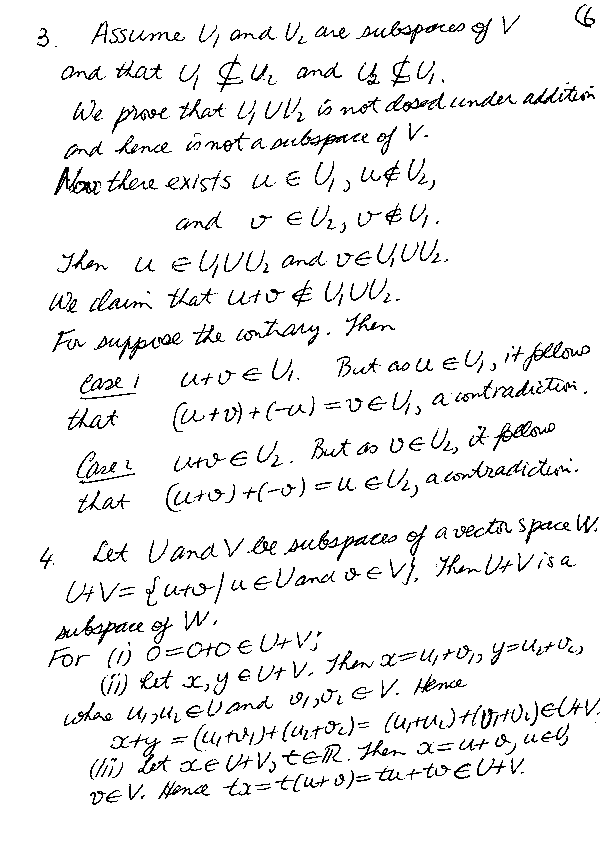 (6
3. Assume U₁ and U₂ are subspaces of V
and that U₁ ⊄ U₂ and U₂ ⊄ U₁.
We prove that U₁∪U₂ is not closed under addition
and hence is not a subspace of V.
Now there exists u ∈ U₁, u ∉ U₂,
and v ∈ U₂, v ∉ U₁.
Then u ∈ U₁∪U₂ and v ∈ U₁∪U₂.
We claim that u+v ∉ U₁∪U₂.
For suppose the contrary. Then
Case 1 u+v ∈ U₁. But as u ∈ U₁, it follows
that (u+v)+(-u) = v ∈ U₁, a contradiction.
Case 2 u+v ∈ U₂. But as v ∈ U₂, it follows
that (u+v)+(-v) = u ∈ U₂, a contradiction.
4. Let U and V be subspaces of a vector space W.
U+V = {u+v | u ∈ U and v ∈ V}. Then U+V is a
subspace of W.
For (i) 0 = 0+0 ∈ U+V;
(ii) Let x, y ∈ U+V. Then x = u₁+v₁, y = u₂+v₂,
where u₁, u₂ ∈ U and v₁, v₂ ∈ V. Hence
x+y = (u₁+v₁)+(u₂+v₂) = (u₁+u₂)+(v₁+v₂) ∈ U+V
(iii) Let x ∈ U+V, t ∈ ℝ. Then x = u+v, u ∈ U,
v ∈ V. Hence tx = t(u+v) = tu+tv ∈ U+V.